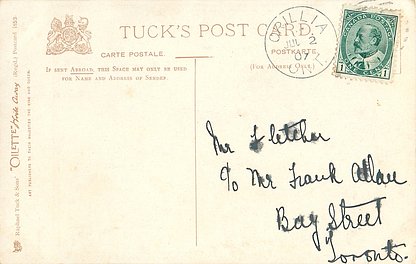 TUCK'S POST CARD.
CARTE POSTALE.
POSTKARTE
(For Address Only)
If sent Abroad, this Space may only be used
for Name and Address of Sender.
ORILLIA
JUL 2
07
ONT.
CANADA POSTAGE
1 1
Mr Fletcher
c/o Mr Frank Allan
Bay Street
Toronto.
Raphael Tuck & Sons' "OILETTE" Wide Away (Regd.) Postcard
ART PUBLISHERS TO THEIR MAJESTIES THE KING AND QUEEN.